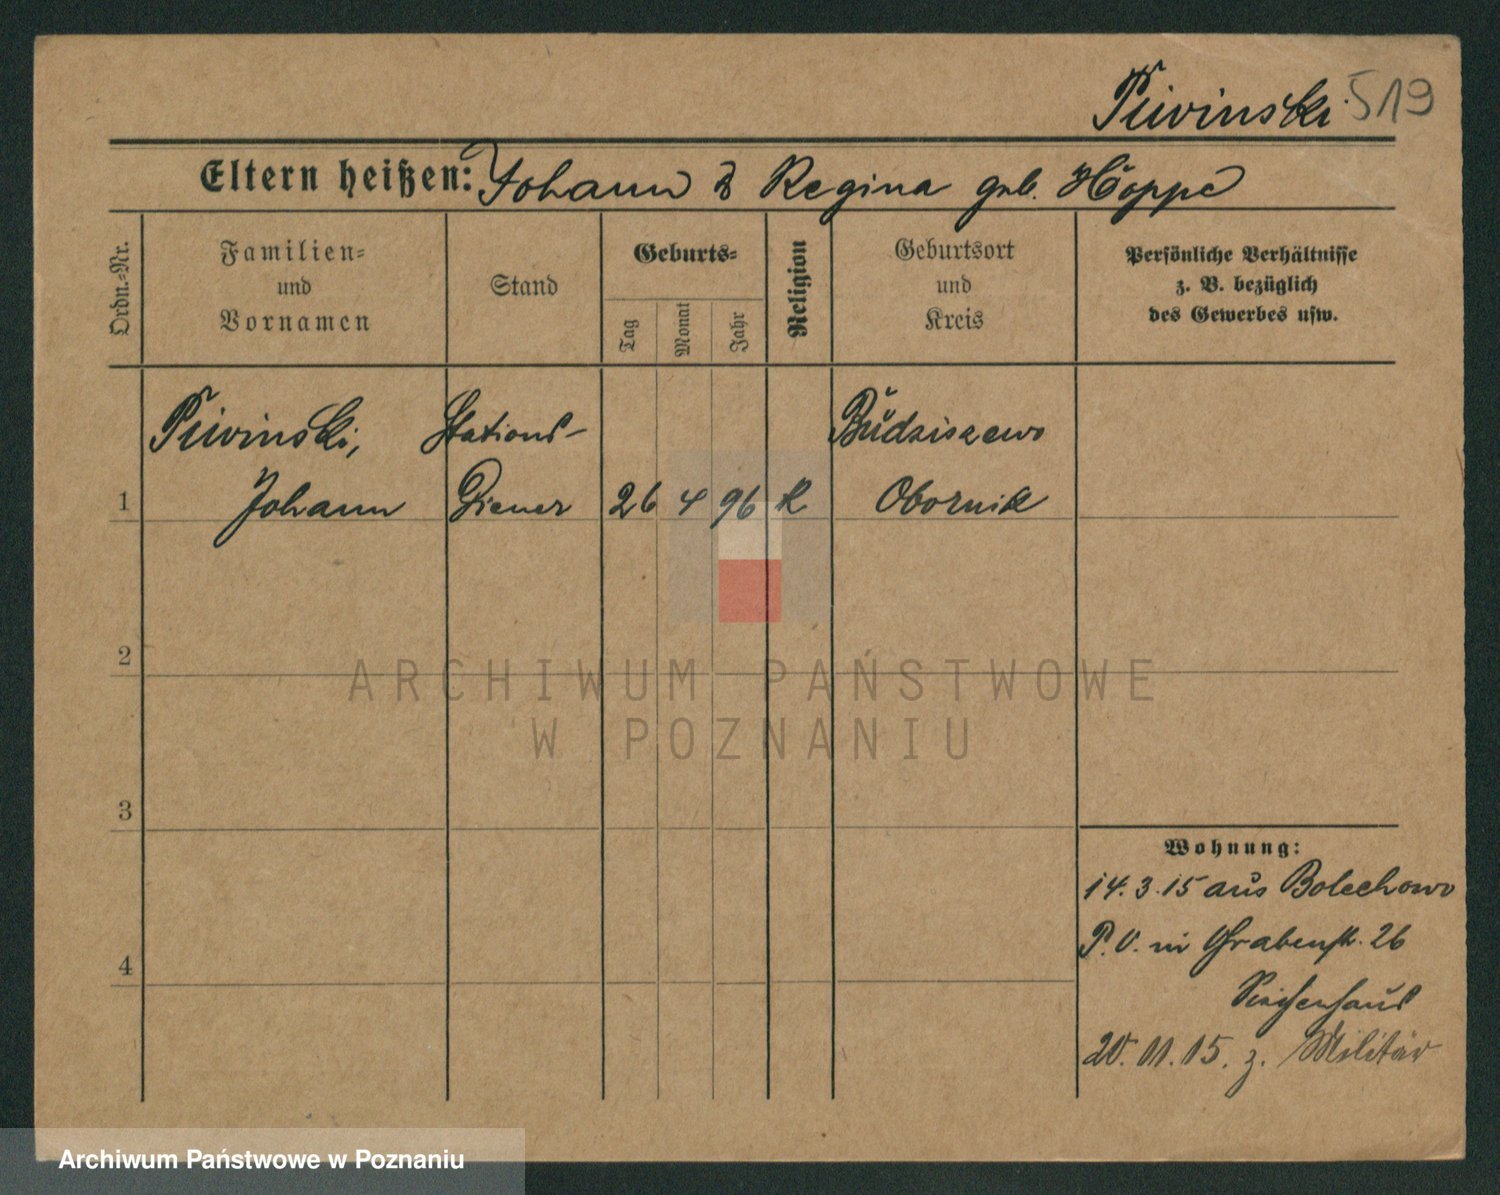 Piwinski 519
Eltern heißen: Johann & Regina geb. Hoppe
Ordn.-Nr.
Familien-
und
Vornamen
Stand
Geburts-
Tag
Monat
Jahr
Religion
Geburtsort
und
Kreis
Persönliche Verhältnisse
z. B. bezüglich
des Gewerbes usw.
Piwinski, Stations- Budziszewo
1 Johann Diener 26 4 96 K Obornik
2
3
4
ARCHIWUM PAŃSTWOWE
W POZNANIU
Wohnung:
14.3.15 aus Bolechowo
P.O. in Grabenstr. 26
Siechenhaus
20.11.15. z. Militär
Archiwum Państwowe w Poznaniu